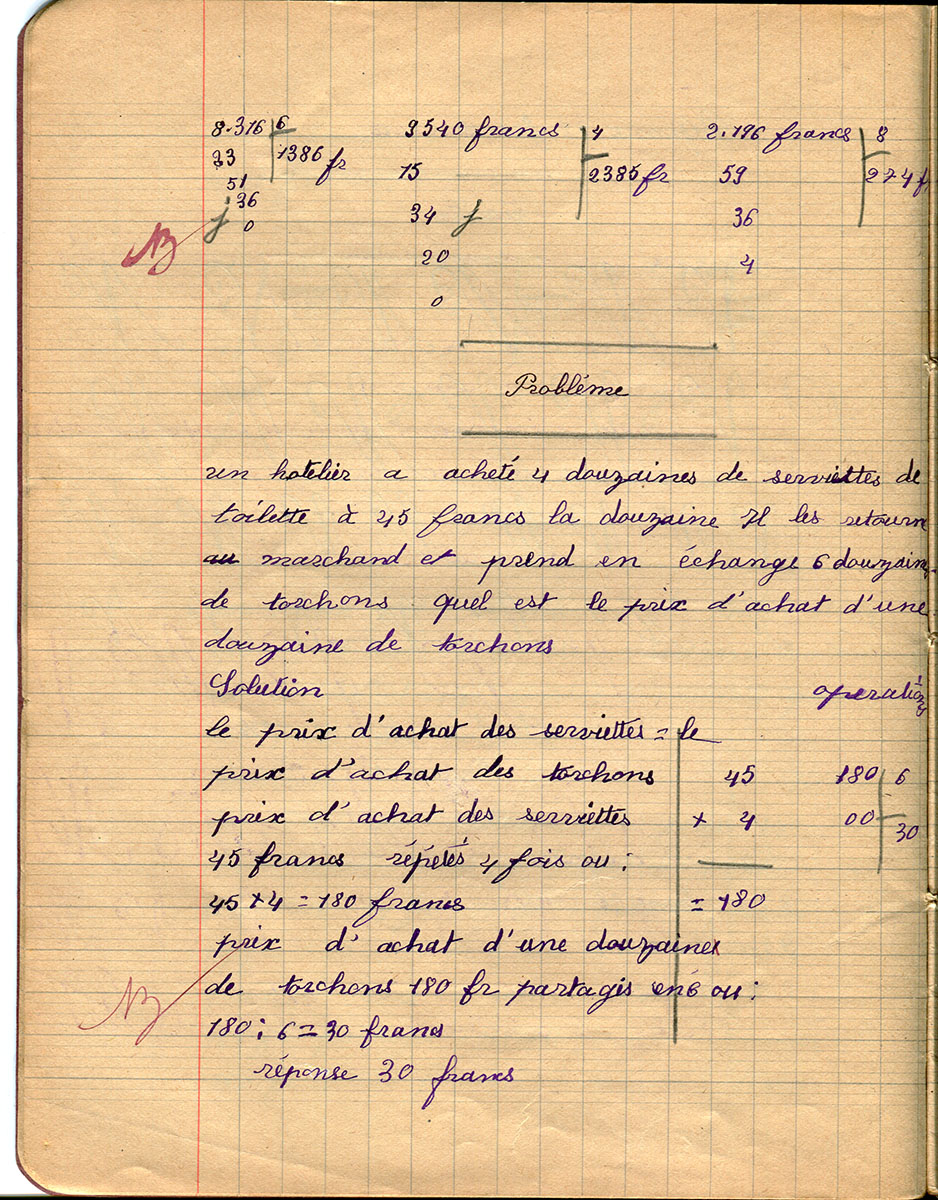 8.316 6 9540 francs 4 2.196 francs 8
23 1386 fr 15 2385 fr 59 274 f
51
36 34 36
0
20 4
0
Problème
un hotelier a acheté 4 douzaines de serviettes de
toilette à 45 francs la douzaine Il les retourn
au marchand et prend en échange 6 douzain
de torchons quel est le prix d'achat d'une
douzaine de torchons
Solution operations
le prix d'achat des serviettes = le
prix d'achat des torchons 45 180 6
prix d'achat des serviettes × 4 00 30
45 francs répétés 4 fois ou :
45 × 4 = 180 francs = 180
prix d'achat d'une douzaines
de torchons 180 fr partagis en 6 ou :
180 : 6 = 30 francs
réponse 30 francs